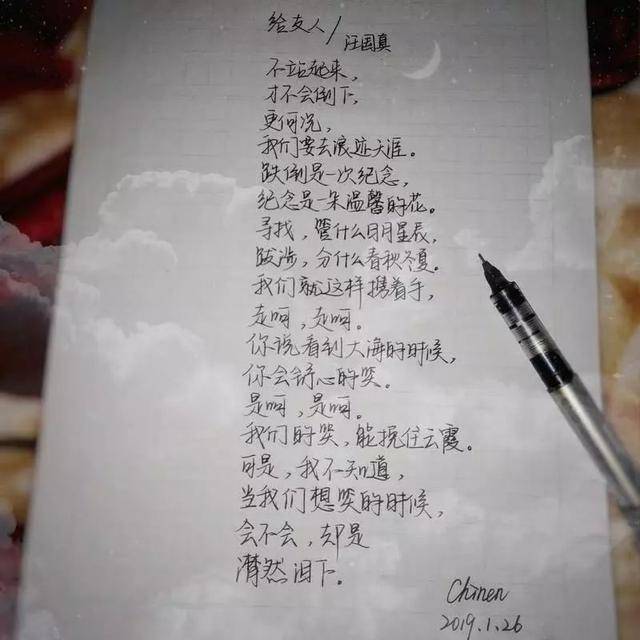 给友人/汪国真
不站起来,
才不会倒下,
更何况,
我们要去浪迹天涯。
跌倒是一次纪念,
纪念是一朵温馨的花。
寻找,管什么日月星辰,
跋涉,分什么春秋冬夏。
我们就这样携着手,
走呵,走呵。
你说看到大海的时候,
你会舒心的笑。
是呵,是呵。
我们的笑,能挽住云霞。
可是,我不知道,
当我们想笑的时候,
会不会,却是
潸然泪下。
Chmen
2019.1.26